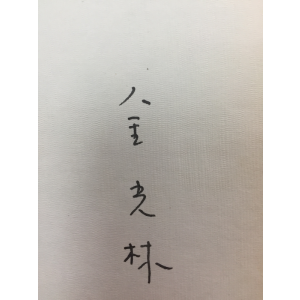 金光林